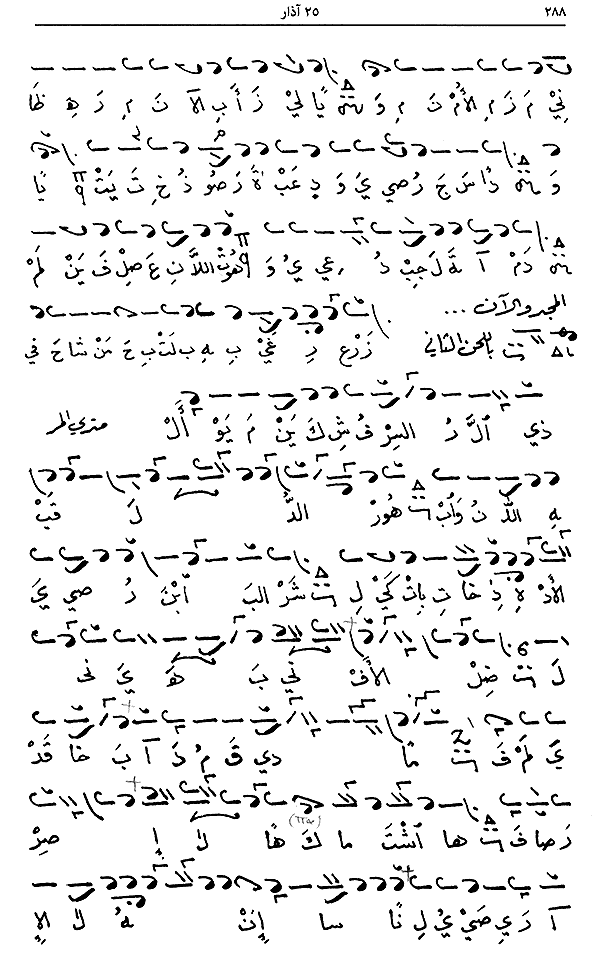 ٢٨٨ ٢٥ آذار
فِيْ مَ زَ مِ الأُمْ نَ مِ وَ يًا لِيْ زَ أَبِ الآ نَ مِ رَ هِـ ظَا
وَ سَ جَ رُ صِي يَ وَ دِ عَبْ ةَ رَ صُوْ ذُ خِـ تَ يَتْ يًا
دَمْ آ ةَ لَ جِبْ دُ عِي يُ وَ هُوْتْ اللاَّ نِ عَ صِلْ فَ يَنْ لَمْ
المجد والآن ...
باللحن الثاني زَرْعِ رِ غَيْ بِ هِ بِ لَتْ بِ حَ مَنْ شاحَ في
ذي الَّ رُ السِرْ فُ شِ كَ يَنْ مَ يَوْ أَلْ
هِ اللّٰ نُ وَابْ هُورْ الدُّ لَ قَبْ
الأَدْ هِ ذِ خا تِ باتْ كَيْ لِ شَرْ البَ ابْنَ رُ صي يَ
لَ ضَلْ الأَفْ ني بَ هَـ يَ نى
يَ لَمْ فَ مًا دي قَ مُ دَ آ بَ خا قَدْ
رَ صا فَ ها اشْتَ ما كَ هًا لٰ إِ صِرْ
آ رَ ي صَيْ يُ لِ نًا سا إِنْ هُ لٰ الإِ